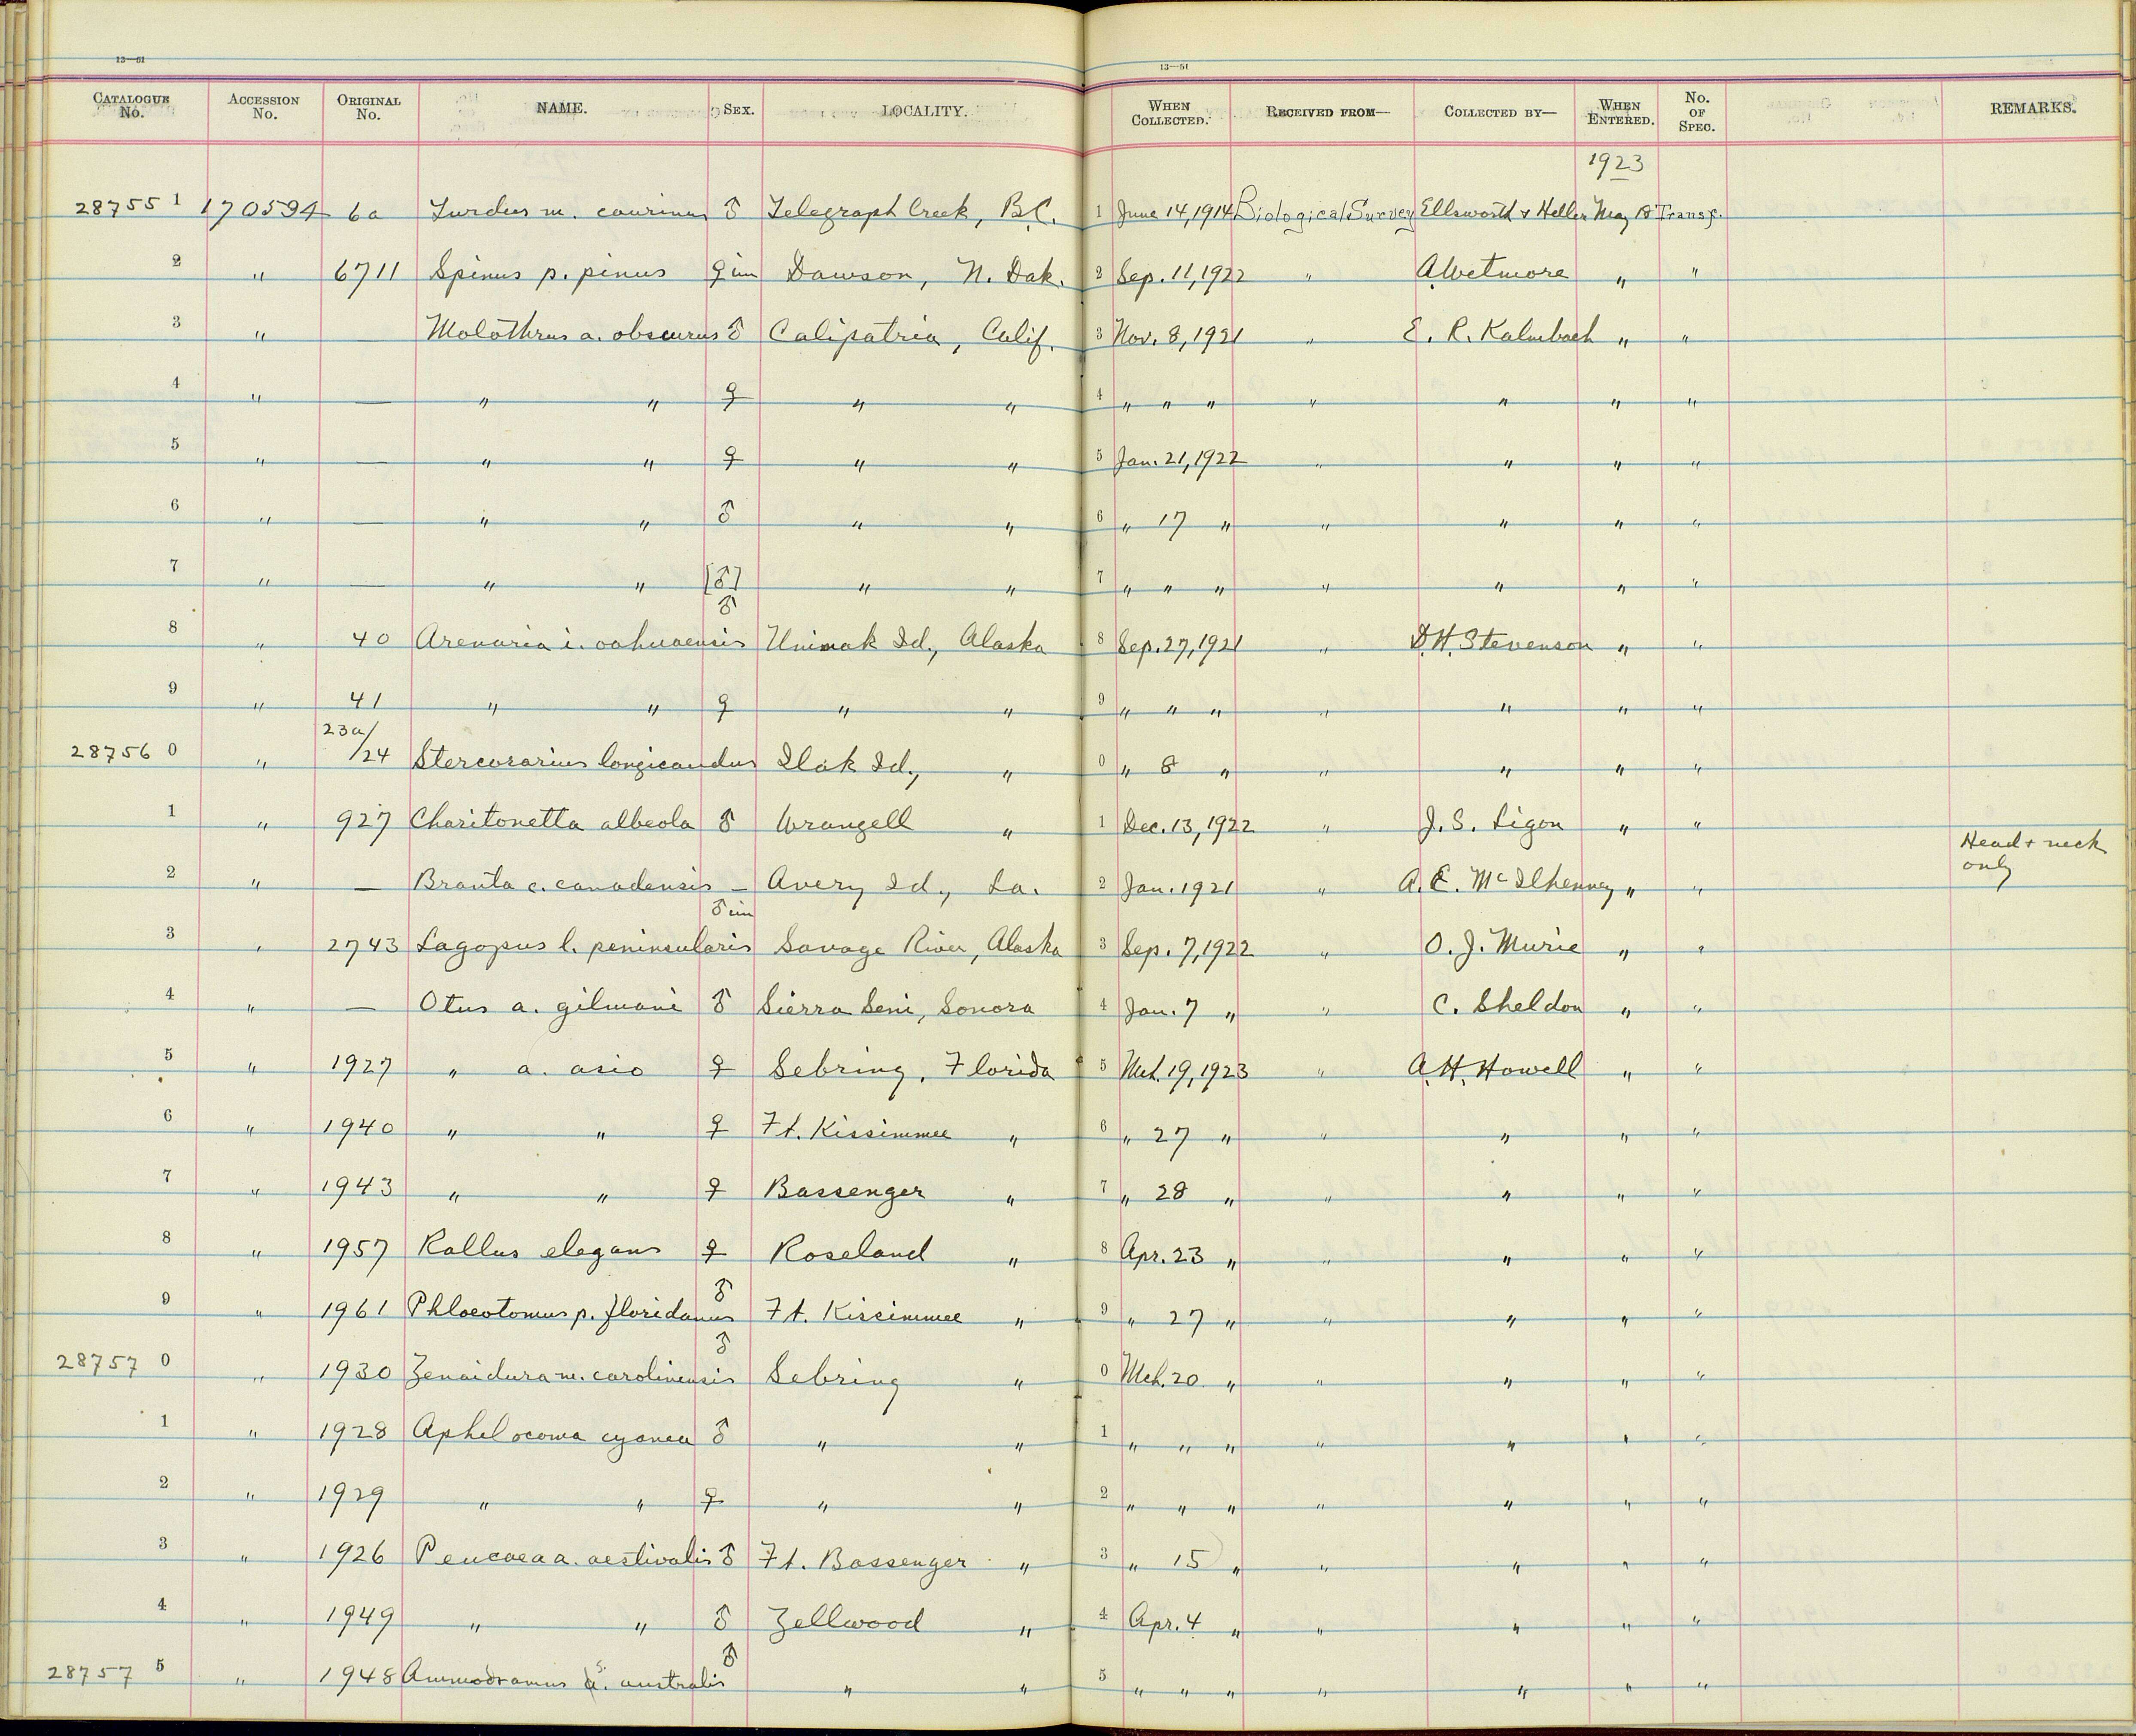 13—51 13—51
CATALOGUE No. ACCESSION No. ORIGINAL No. NAME. SEX. LOCALITY. WHEN COLLECTED. RECEIVED FROM— COLLECTED BY— WHEN ENTERED. No. OF SPEC. REMARKS.
1923
28755 1 170594 6a Turdus m. caurinus ♂ Telegraph Creek, B.C. 1 June 14, 1914 Biological Survey Ellsworth + Heller May 18 Transf.
2 " 6711 Spinus p. pinus ♀ im Dawson, N. Dak. 2 Sep. 11, 1922 " A Wetmore " "
3 " — Molothrus a. obscurus ♂ Calipatria, Calif. 3 Nov. 8, 1921 " E. R. Kalmbach " "
4 " — " " ♀ " " 4 " " " " " " "
5 " — " " ♀ " " 5 Jan. 21, 1922 " " " "
6 " — " " ♂ " " 6 " 17 " " " " "
7 " — " " [♂] " " 7 " " " " " " "
8 " 40 Arenaria i. oahuaensis ♂ Unimak Id., Alaska 8 Sep. 27, 1921 " D.H. Stevenson " "
9 " 41 " " ♀ " " 9 " " " " " " "
28756 0 " 23a/24 Stercorarius longicaudus Ilak Id., " 0 " 8 " " " " "
1 " 927 Charitonetta albeola ♂ Wrangell " 1 Dec. 13, 1922 " J. S. Ligon " "
2 " — Branta c. canadensis — Avery Id., La. 2 Jan. 1921 " A. E. McIlhenney " " Head + neck only
3 " 2743 Lagopus l. peninsularis ♂ im Savage River, Alaska 3 Sep. 7, 1922 " O. J. Murie " "
4 " — Otus a. gilmani ♂ Sierra Seri, Sonora 4 Jan. 7 " " C. Sheldon " "
5 " 1927 " a. asio ♀ Sebring, Florida 5 Mch. 19, 1923 " A. H. Howell " "
6 " 1940 " " ♀ Ft. Kissimmee " 6 " 27 " " " " "
7 " 1943 " " ♀ Bassenger " 7 " 28 " " " " "
8 " 1957 Rallus elegans ♀ Roseland " 8 Apr. 23 " " " " "
9 " 1961 Phloeotomus p. floridanus ♂ Ft. Kissimmee " 9 " 27 " " " " "
28757 0 " 1930 Zenaidura m. carolinensis ♂ Sebring " 0 Mch. 20 " " " " "
1 " 1928 Aphelocoma cyanea ♂ " " 1 " " " " " " "
2 " 1929 " " ♀ " " 2 " " " " " " "
3 " 1926 Peucaea a. aestivalis ♂ Ft. Bassenger " 3 " 15 " " " " "
4 " 1949 " " ♂ Zellwood " 4 Apr. 4 " " " " "
28757 5 " 1948 Ammodramus s. australis ♂ " " 5 " " " " " " "